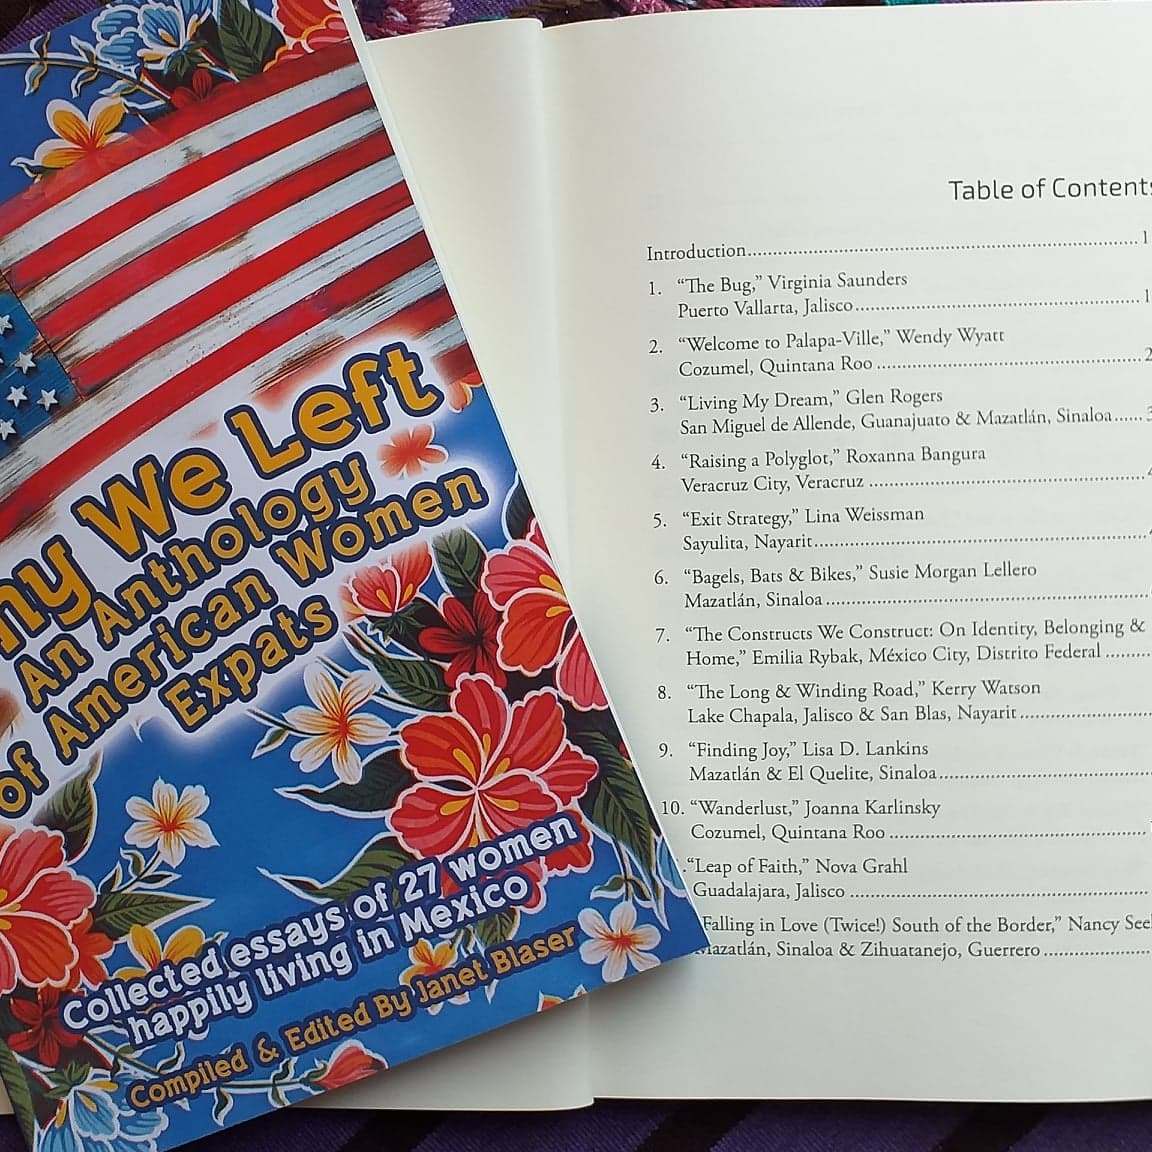 ny We Left
An Anthology
of American Women
Expats
Collected essays of 27 women
happily living in Mexico
Compiled & Edited By Janet Blaser
Table of Contents
Introduction.......... 1
1. “The Bug,” Virginia Saunders
Puerto Vallarta, Jalisco.......... 1
2. “Welcome to Palapa-Ville,” Wendy Wyatt
Cozumel, Quintana Roo .......... 2
3. “Living My Dream,” Glen Rogers
San Miguel de Allende, Guanajuato & Mazatlán, Sinaloa...... 3
4. “Raising a Polyglot,” Roxanna Bangura
Veracruz City, Veracruz ..........
5. “Exit Strategy,” Lina Weissman
Sayulita, Nayarit..........
6. “Bagels, Bats & Bikes,” Susie Morgan Lellero
Mazatlán, Sinaloa..........
7. “The Constructs We Construct: On Identity, Belonging &
Home,” Emilia Rybak, México City, Distrito Federal ..........
8. “The Long & Winding Road,” Kerry Watson
Lake Chapala, Jalisco & San Blas, Nayarit..........
9. “Finding Joy,” Lisa D. Lankins
Mazatlán & El Quelite, Sinaloa..........
10. “Wanderlust,” Joanna Karlinsky
Cozumel, Quintana Roo ..........
“Leap of Faith,” Nova Grahl
Guadalajara, Jalisco ..........
Falling in Love (Twice!) South of the Border,” Nancy See
Mazatlán, Sinaloa & Zihuatanejo, Guerrero..........